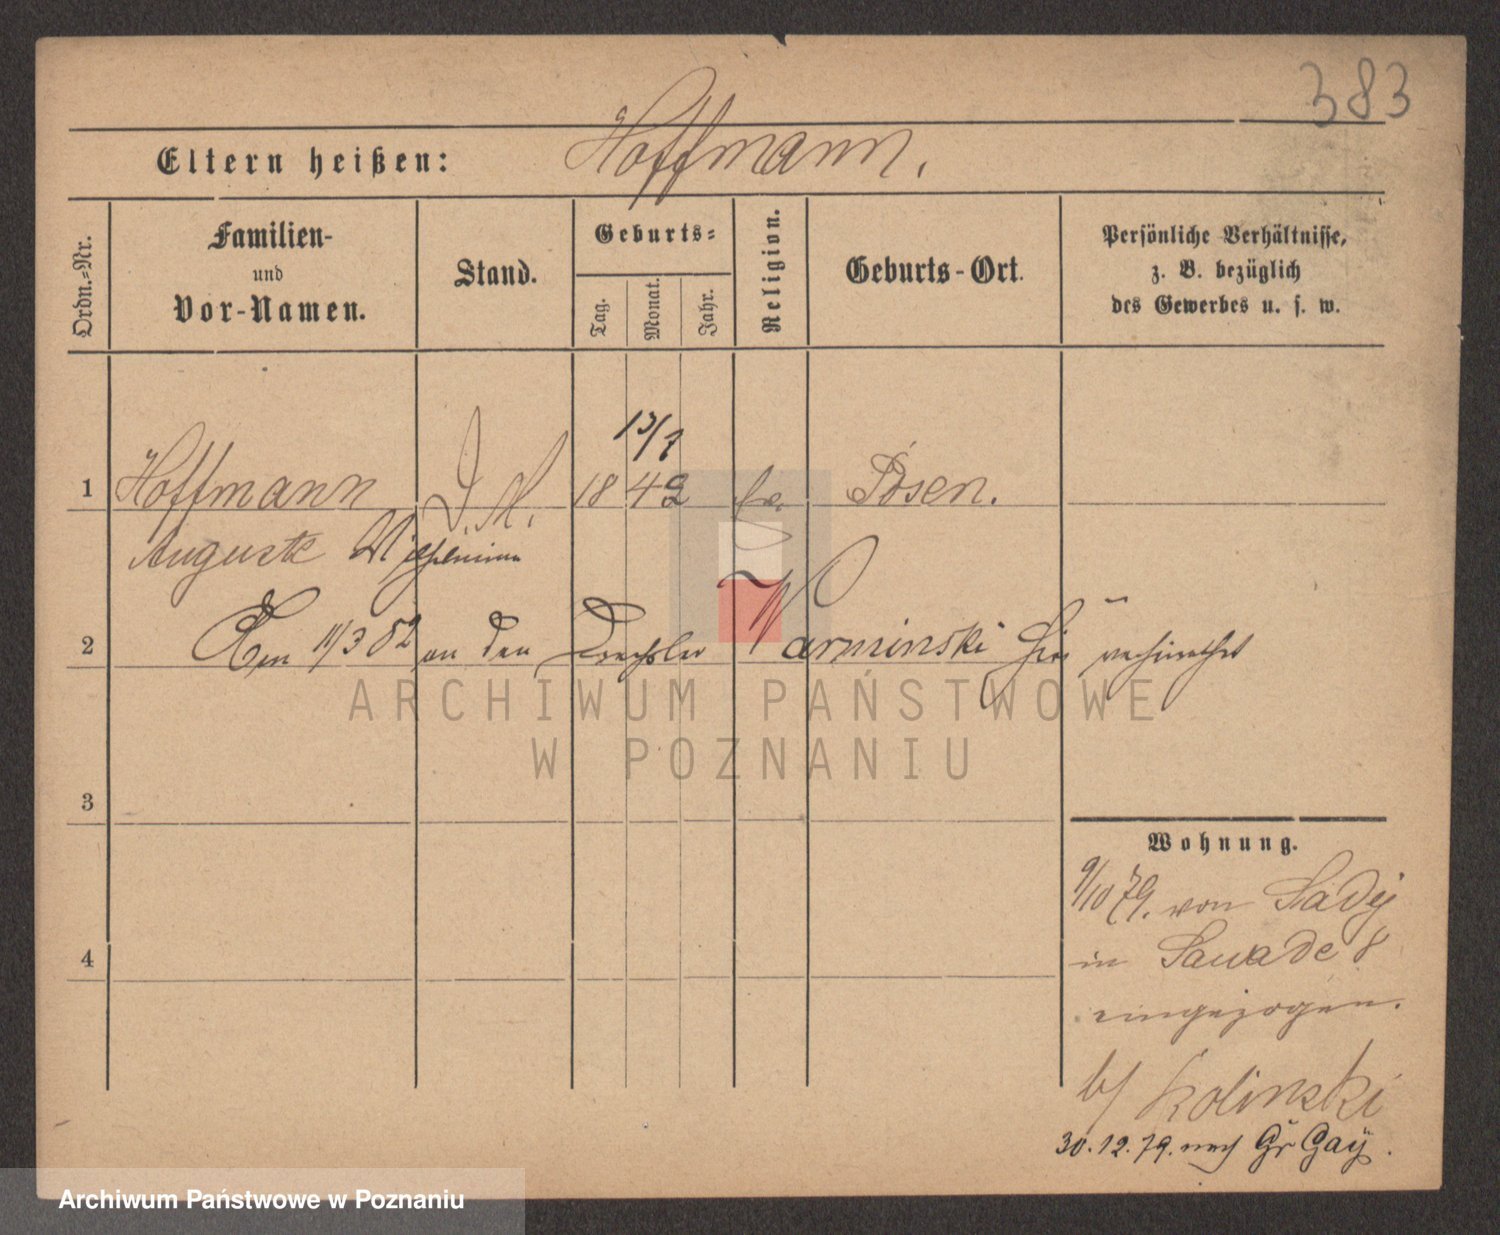 383
Eltern heißen: Hoffmann.
Ordn.-Nr.
Familien-
und
Vor-Namen.
Stand.
Geburts-
Tag.
Monat.
Jahr.
Religion.
Geburts-Ort.
Persönliche Verhältnisse,
z. B. bezüglich
des Gewerbes u. s. w.
13/7
1 Hoffmann D. M. 1842 Posen.
Auguste Wilhelmine
2 Am 11/3 82 an den Drechsler Warminski hier verheirathet
ARCHIWUM PAŃSTWOWE
W POZNANIU
3
Wohnung.
9/10 79. von Sady
in Sawade 8
4
eingezogen.
b/ Kolinski
30.12.79. nach Gr Gay.
Archiwum Państwowe w Poznaniu